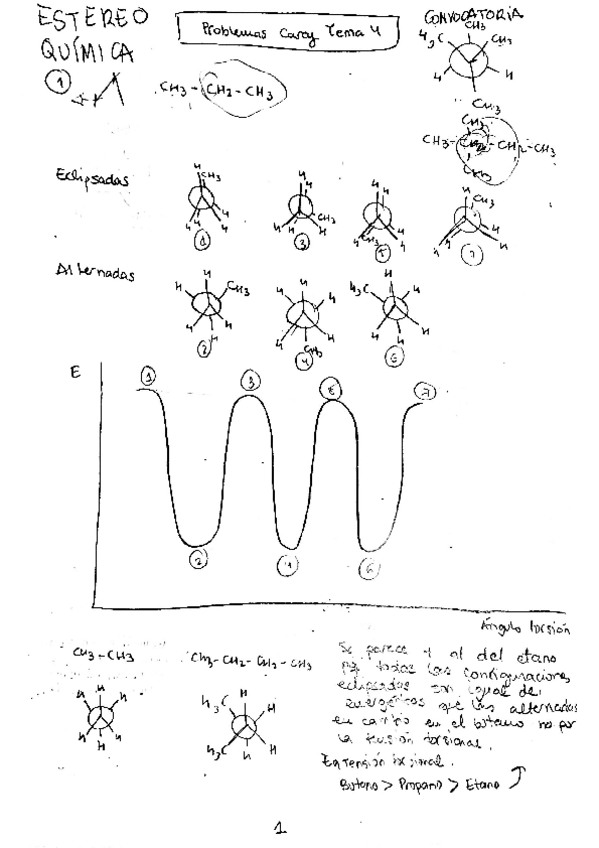 ESTEREO
QUÍMICA
Problemas Carey Tema 4
CONVOCATORIA
CH3
H3C CH3
H H
CH3
1
CH3-CH2-CH3
CH3
CH3-CH2-CH2-CH3
CH3
Eclipsadas
H
CH3
H H
H H
1
H
H
CH3
H H
3
H H
CH3 H
H H
5
H
CH3
H H
H H
7
Alternadas
H
H CH3
H H
H
2
H
H H
H H
CH3
4
H
H3C H
H H
H
6
E
1 3 5 7
2 4 6
Ángulo torsión
CH3-CH3
H
H H
H H
H
CH3-CH2-CH2-CH3
H3C H
H
H3C H
H
Se parece + al del etano
pq todas las configuraciones
eclipsadas son igual de
energéticas que las alternadas
en cambio en el butano no por
la tensión torsional.
En tensión torsional.
Butano > Propano > Etano
1